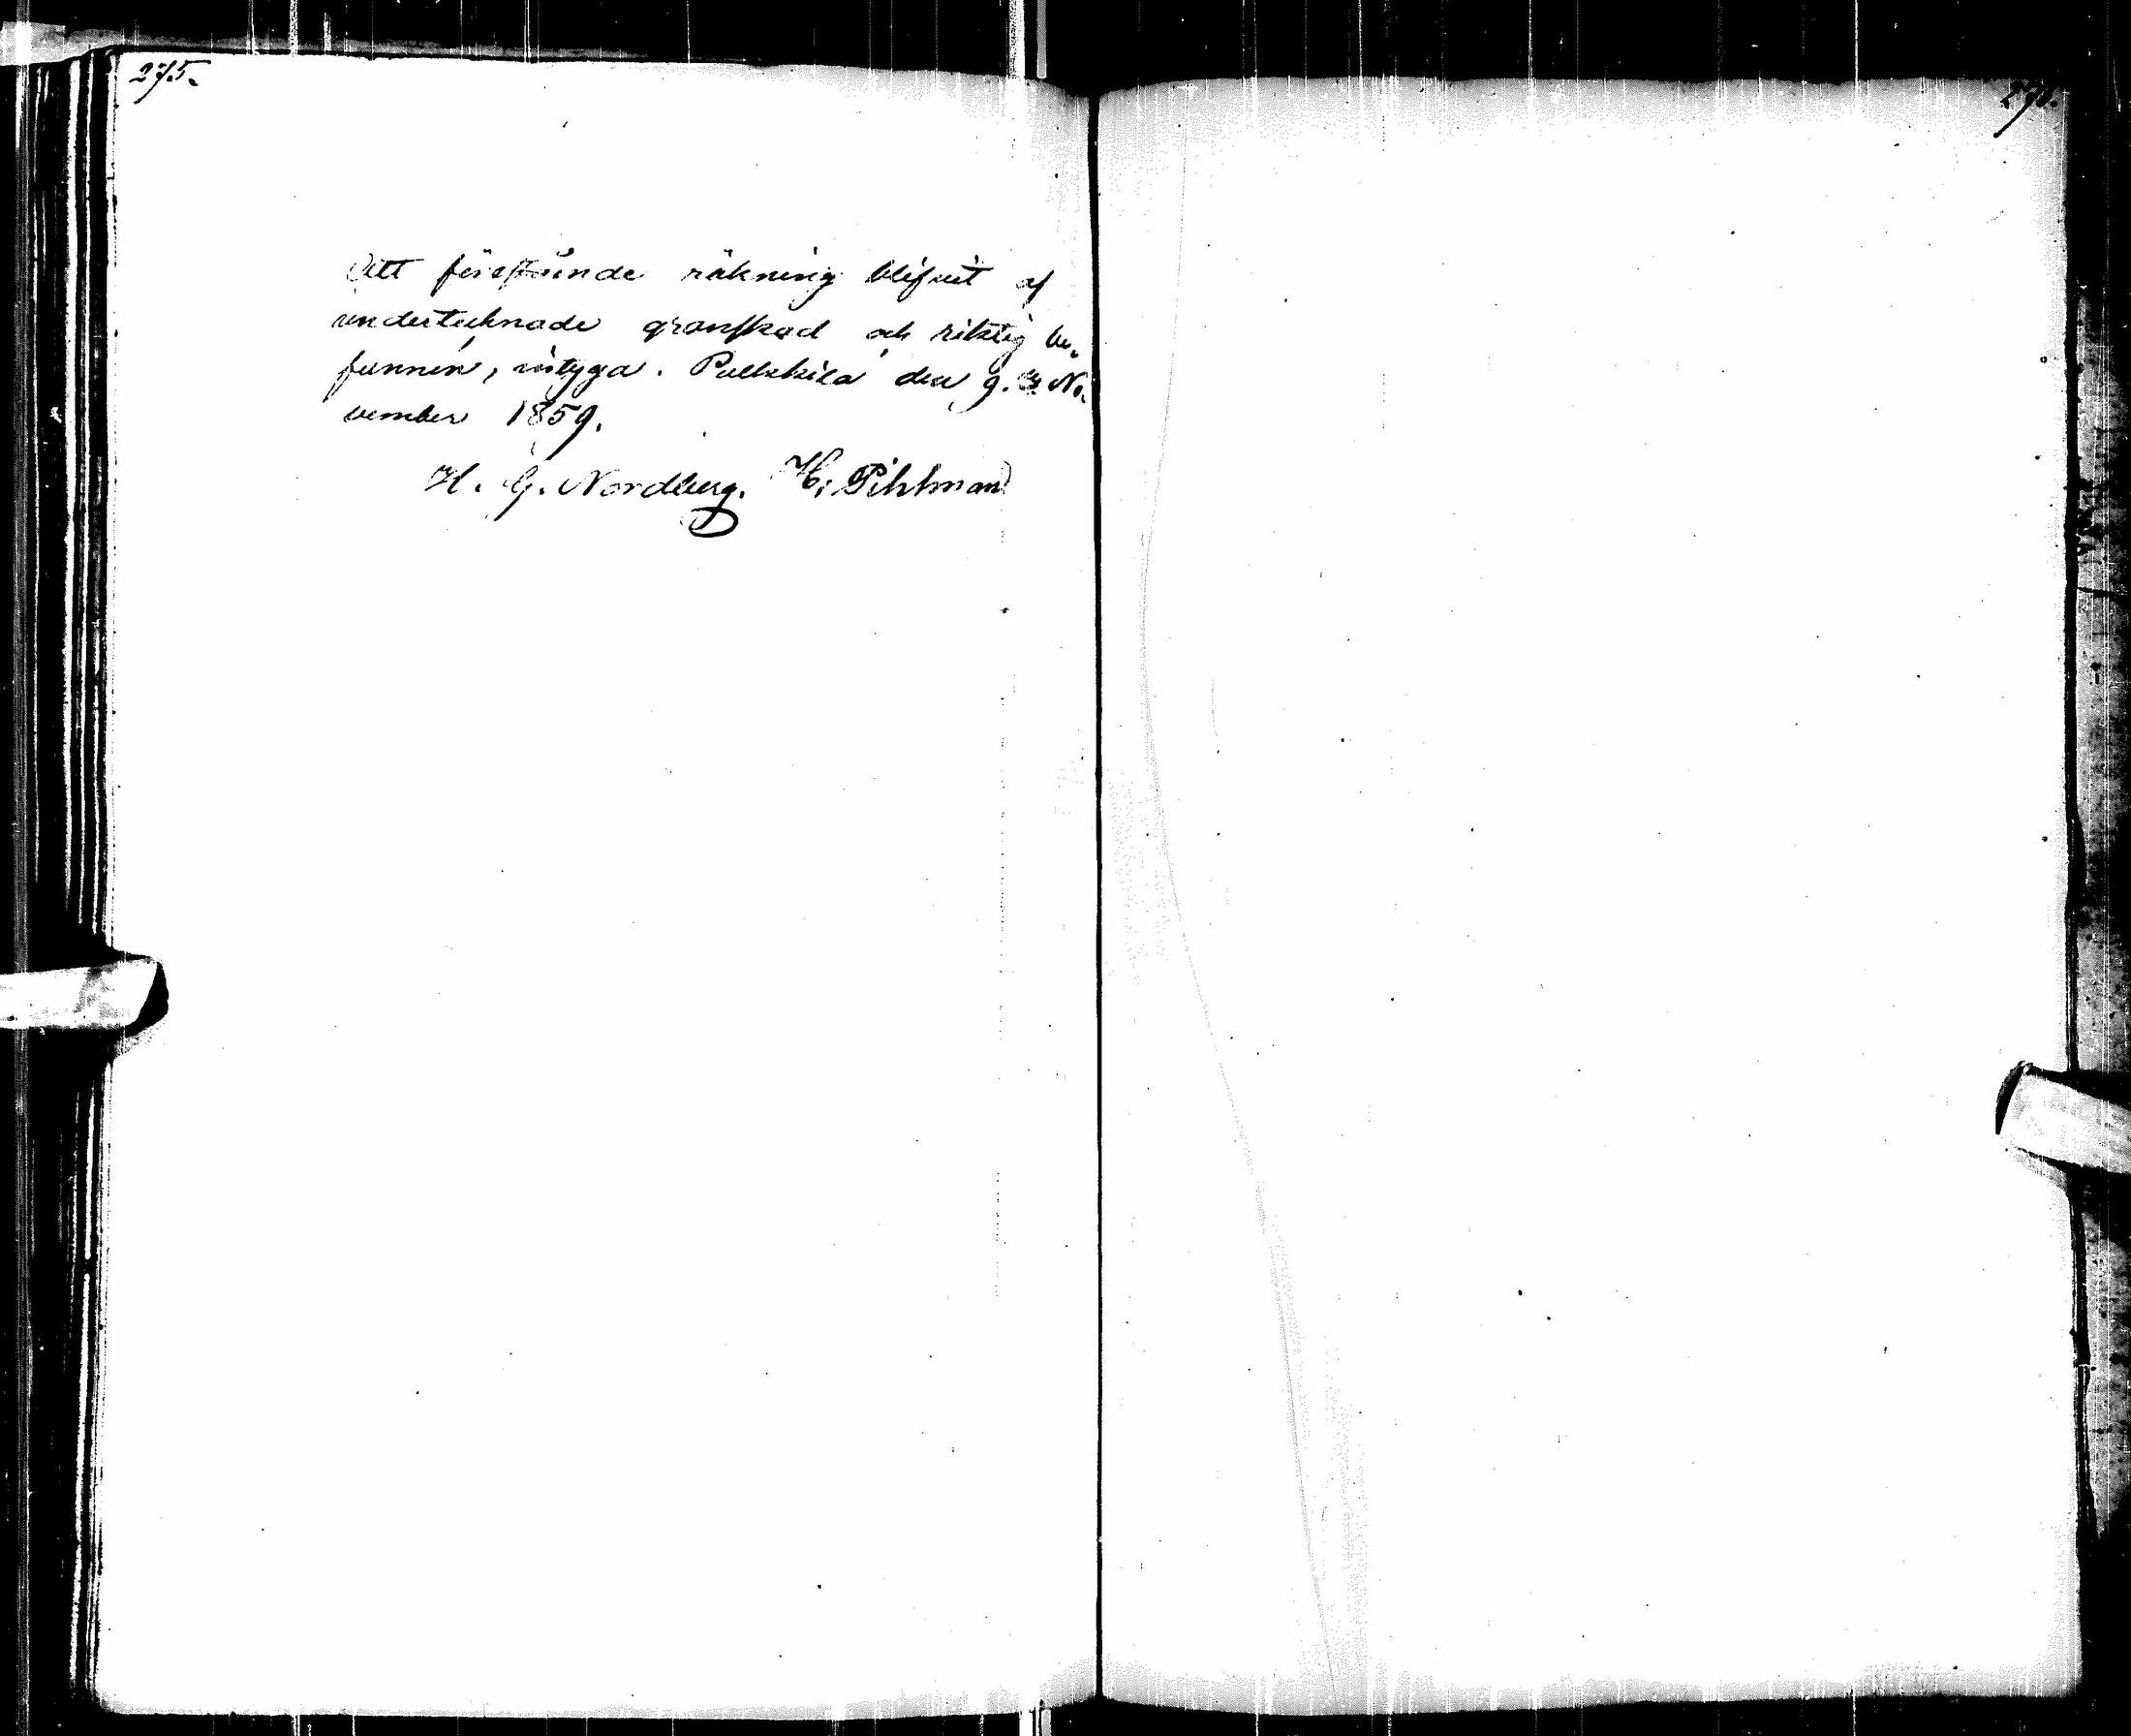 275.
Att förestående räkning blifvit af
undertecknade granskad och riktig be-
funnen, intyga. Pulkkila den 9. November
vember 1859.
H. G. Nordberg. H. Pihlman
276.